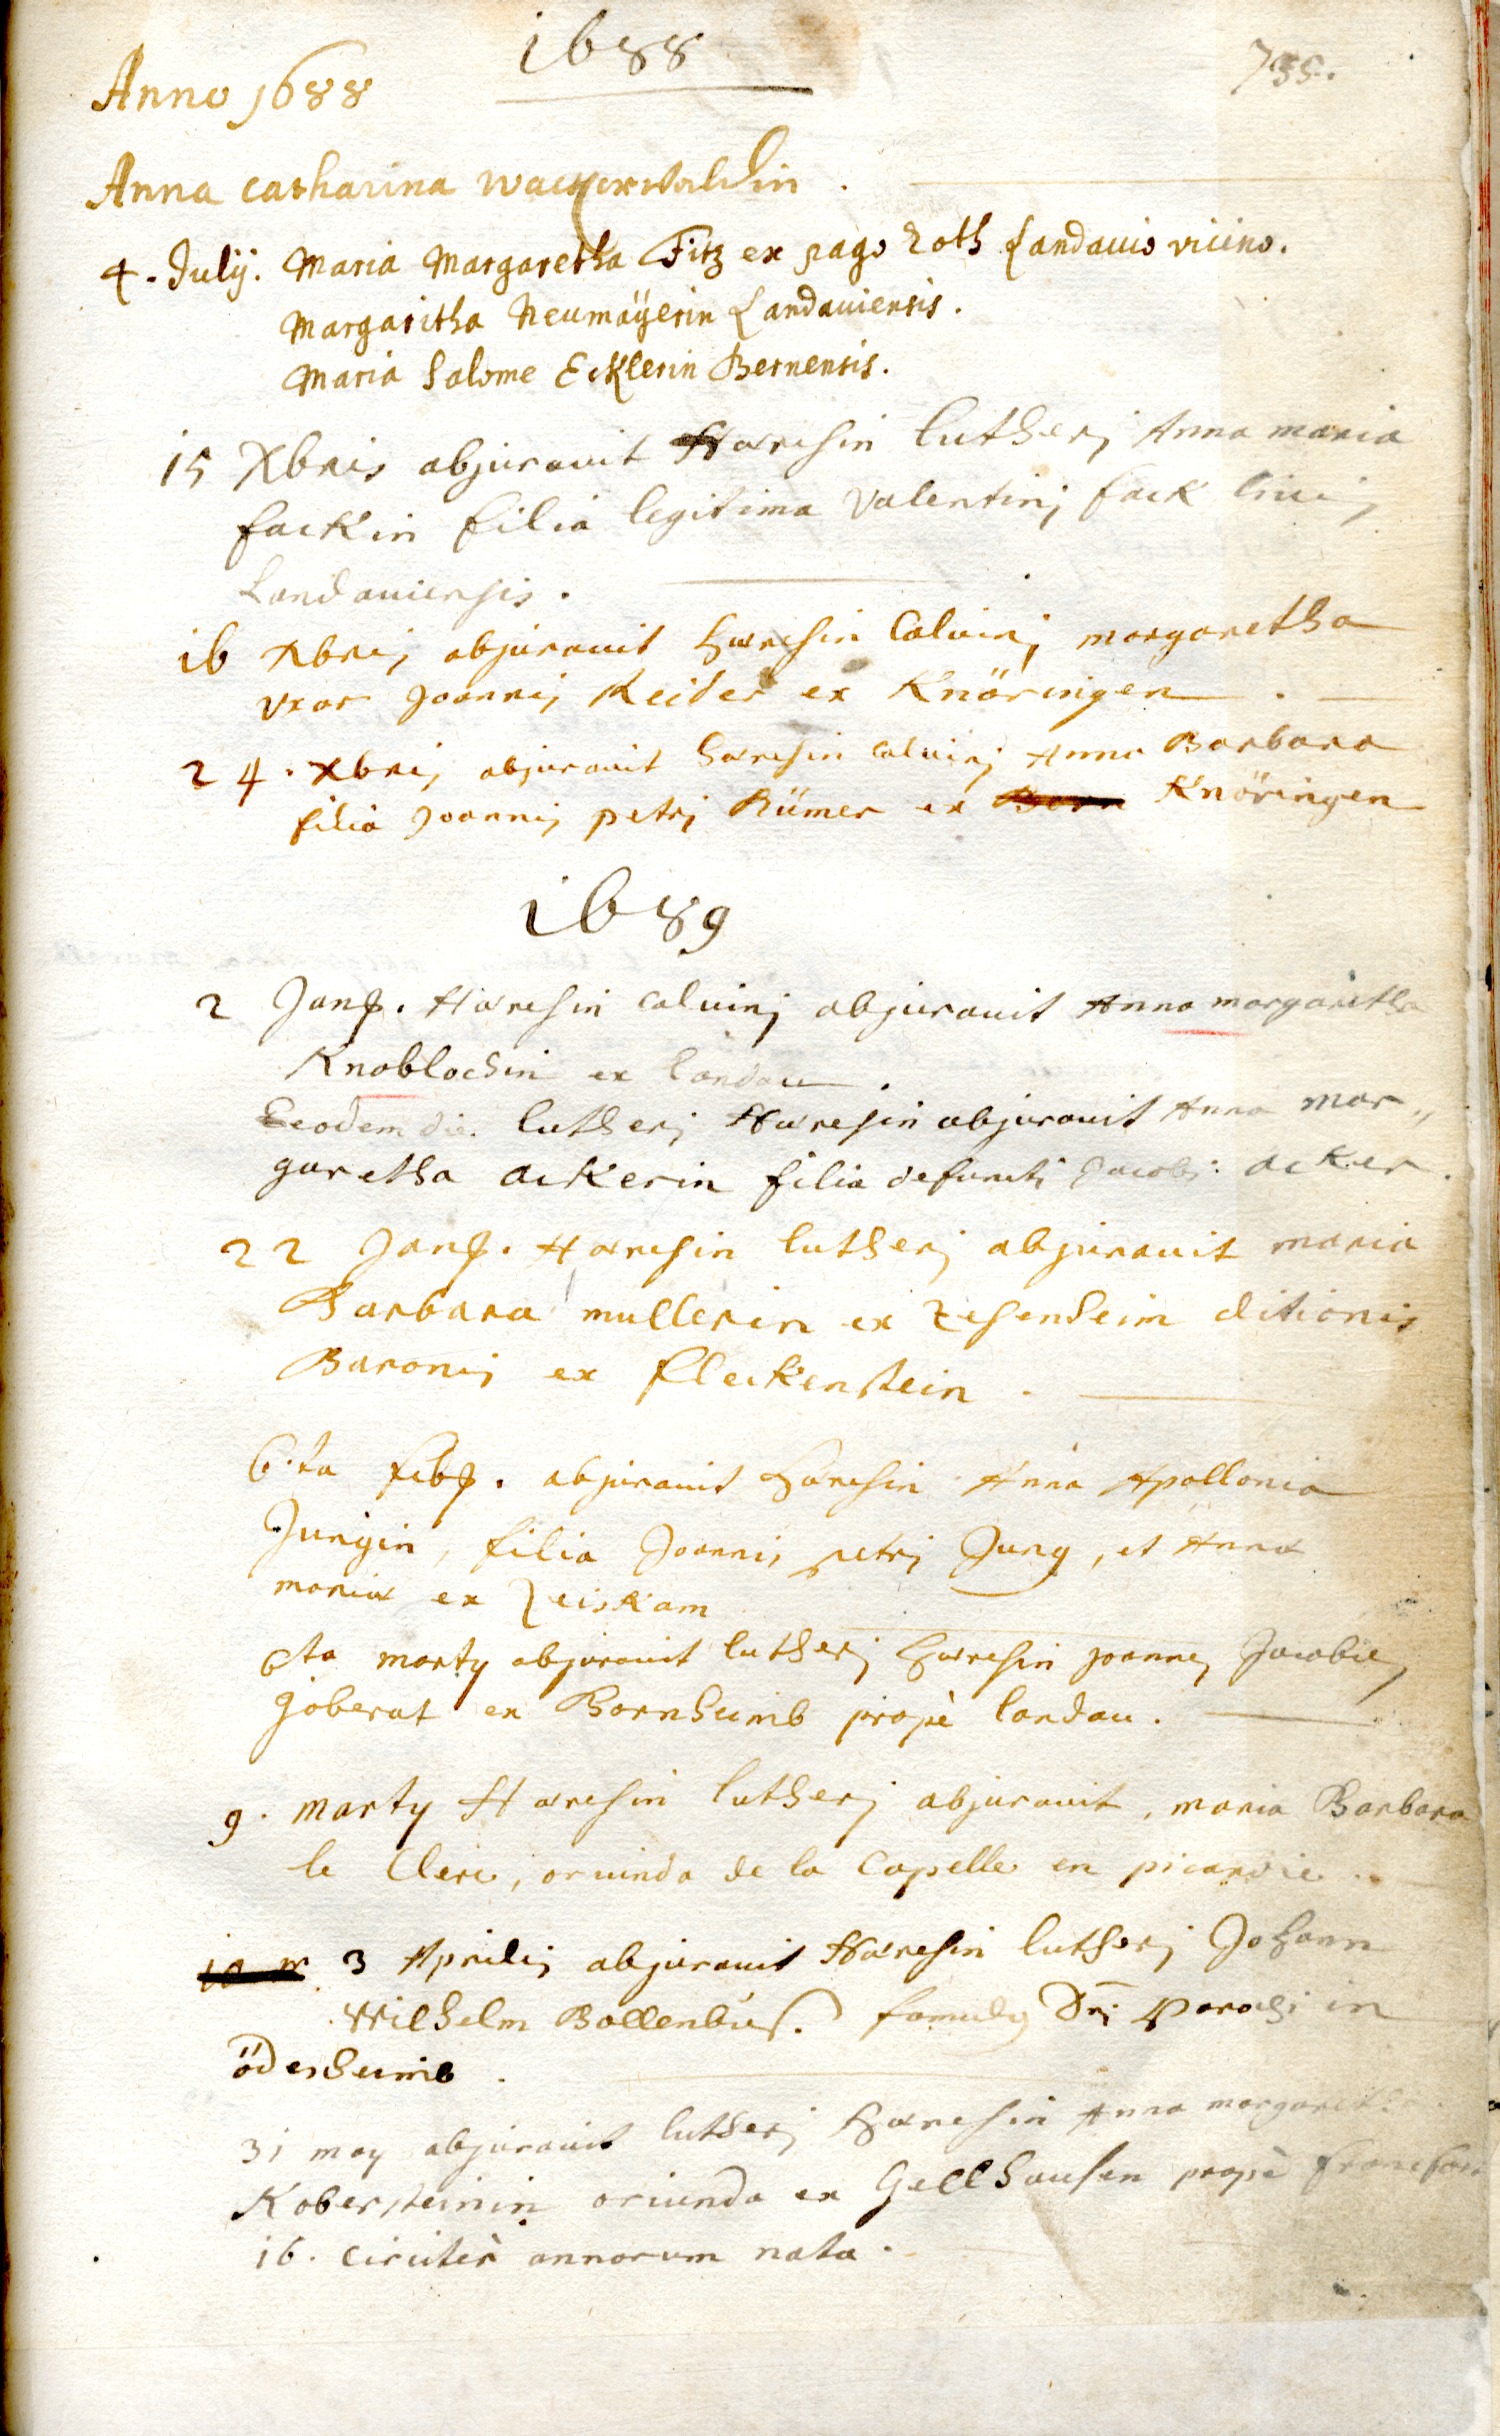 1688
735.
Anno 1688
Anna Catharina Wackerwaldin.
4. Julij. Maria Margaretha Fitz ex pago Roth Landauio vicino.
Margaritha Neumaÿerin Landauiensis.
Maria Salome Ecklerin Bernensis.
15 Xbris abjurauit Hæresin lutherj Anna maria
fackin filia legitima Valentinj fack Ciuis
Landauiensis.
16 Xbris abjurauit hæresin Caluinj margaretha
vxor Joannis Keider ex Knöringen.
24. Xbris abjurauit hæresin caluinj Anna Barbara
filia Joannis petrj Rümer ex Knöringen
1689
2 Jan. Hæresin caluinj abjurauit Anna margaretha
Knoblochin ex Landau.
Eeodem die lutherj Hæresin abjurauit Anna mar„
garetha Ackerin filia defuncti Jacobi Acker.
22 Jan. Hæresin lutherj abjurauit maria
Barbara mullerin ex Zesenheim ditionis
Baronis ex fleckenstein.
6.ta feb. abjurauit hæresin Anna Apollonia
Jungin, filia Joannis petrj Jung, et Annæ
mariæ ex Zeiskam
6ta martij abjurauit lutherj hæresin joannes Jacobus
Joberat ex Bornheimb propè landau.
9. martij Hæresin lutherj abjurauit, maria Barbara
le Clerc, oriunda de la Capelle en picardie.
3 Aprilis abjurauit Hæresin lutherj Johann
Wilhelm Bollenbus. famulus Dni Parochi in
ödesheimb.
31 may abjurauit lutherj hæresin Anna margaretha
Kobersteinin oriunda ex Gellhausen propè francfort
16. circiter annorum nata.